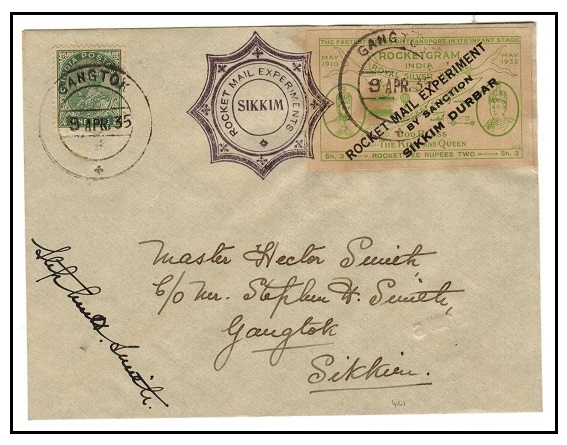 INDIA POSTAGE
GANGTOK
9 APR. 35
ROCKET MAIL EXPERIMENTS
SIKKIM
THE FASTEST MODE OF TRANSPORT IN ITS INFANT STAGE
MAY 1910
ROCKETGRAM
INDIA
MAY 1935
ROYAL SILVER
GANGTOK
9 APR. 3
ROCKET MAIL EXPERIMENT
BY SANCTION
SIKKIM DURBAR
GOD BLESS
THE KING AND QUEEN
Sh. 3
ROCKET FEE RUPEES TWO
Sh. 3
Master Hector Smith
C/o Mr. Stephen H. Smith,
Gangtok
Sikkim.
Stephen H. Smith.